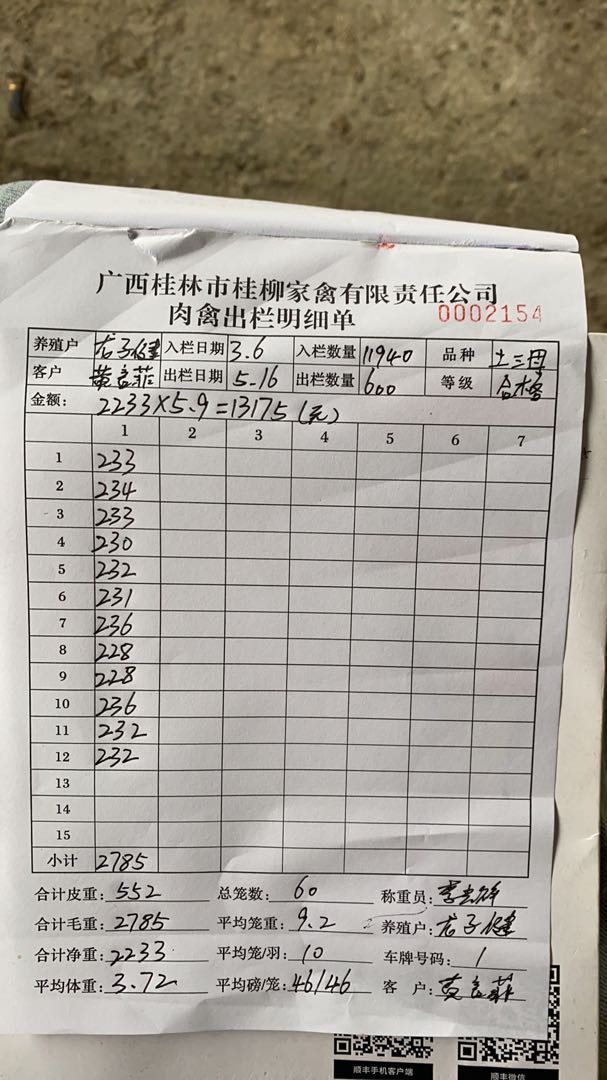 广西桂林市桂柳家禽有限责任公司
肉禽出栏明细单 0002154
养殖户 龙子健 入栏日期 3.6 入栏数量 11940 品种 土三母
客户 黄言菲 出栏日期 5.16 出栏数量 600 等级 合格
金额: 2233×5.9=13175(元)
1 2 3 4 5 6 7
1 233
2 234
3 233
4 230
5 232
6 231
7 236
8 228
9 228
10 236
11 232
12 232
13
14
15
小计 2785
合计皮重: 552 总笼数: 60 称重员:
合计毛重: 2785 平均笼重: 9.2 养殖户: 龙子健
合计净重: 2233 平均笼/羽: 10 车牌号码: 1
平均体重: 3.72 平均磅/笼: 46/46 客 户: 黄言菲
顺丰手机客户端 顺丰微信